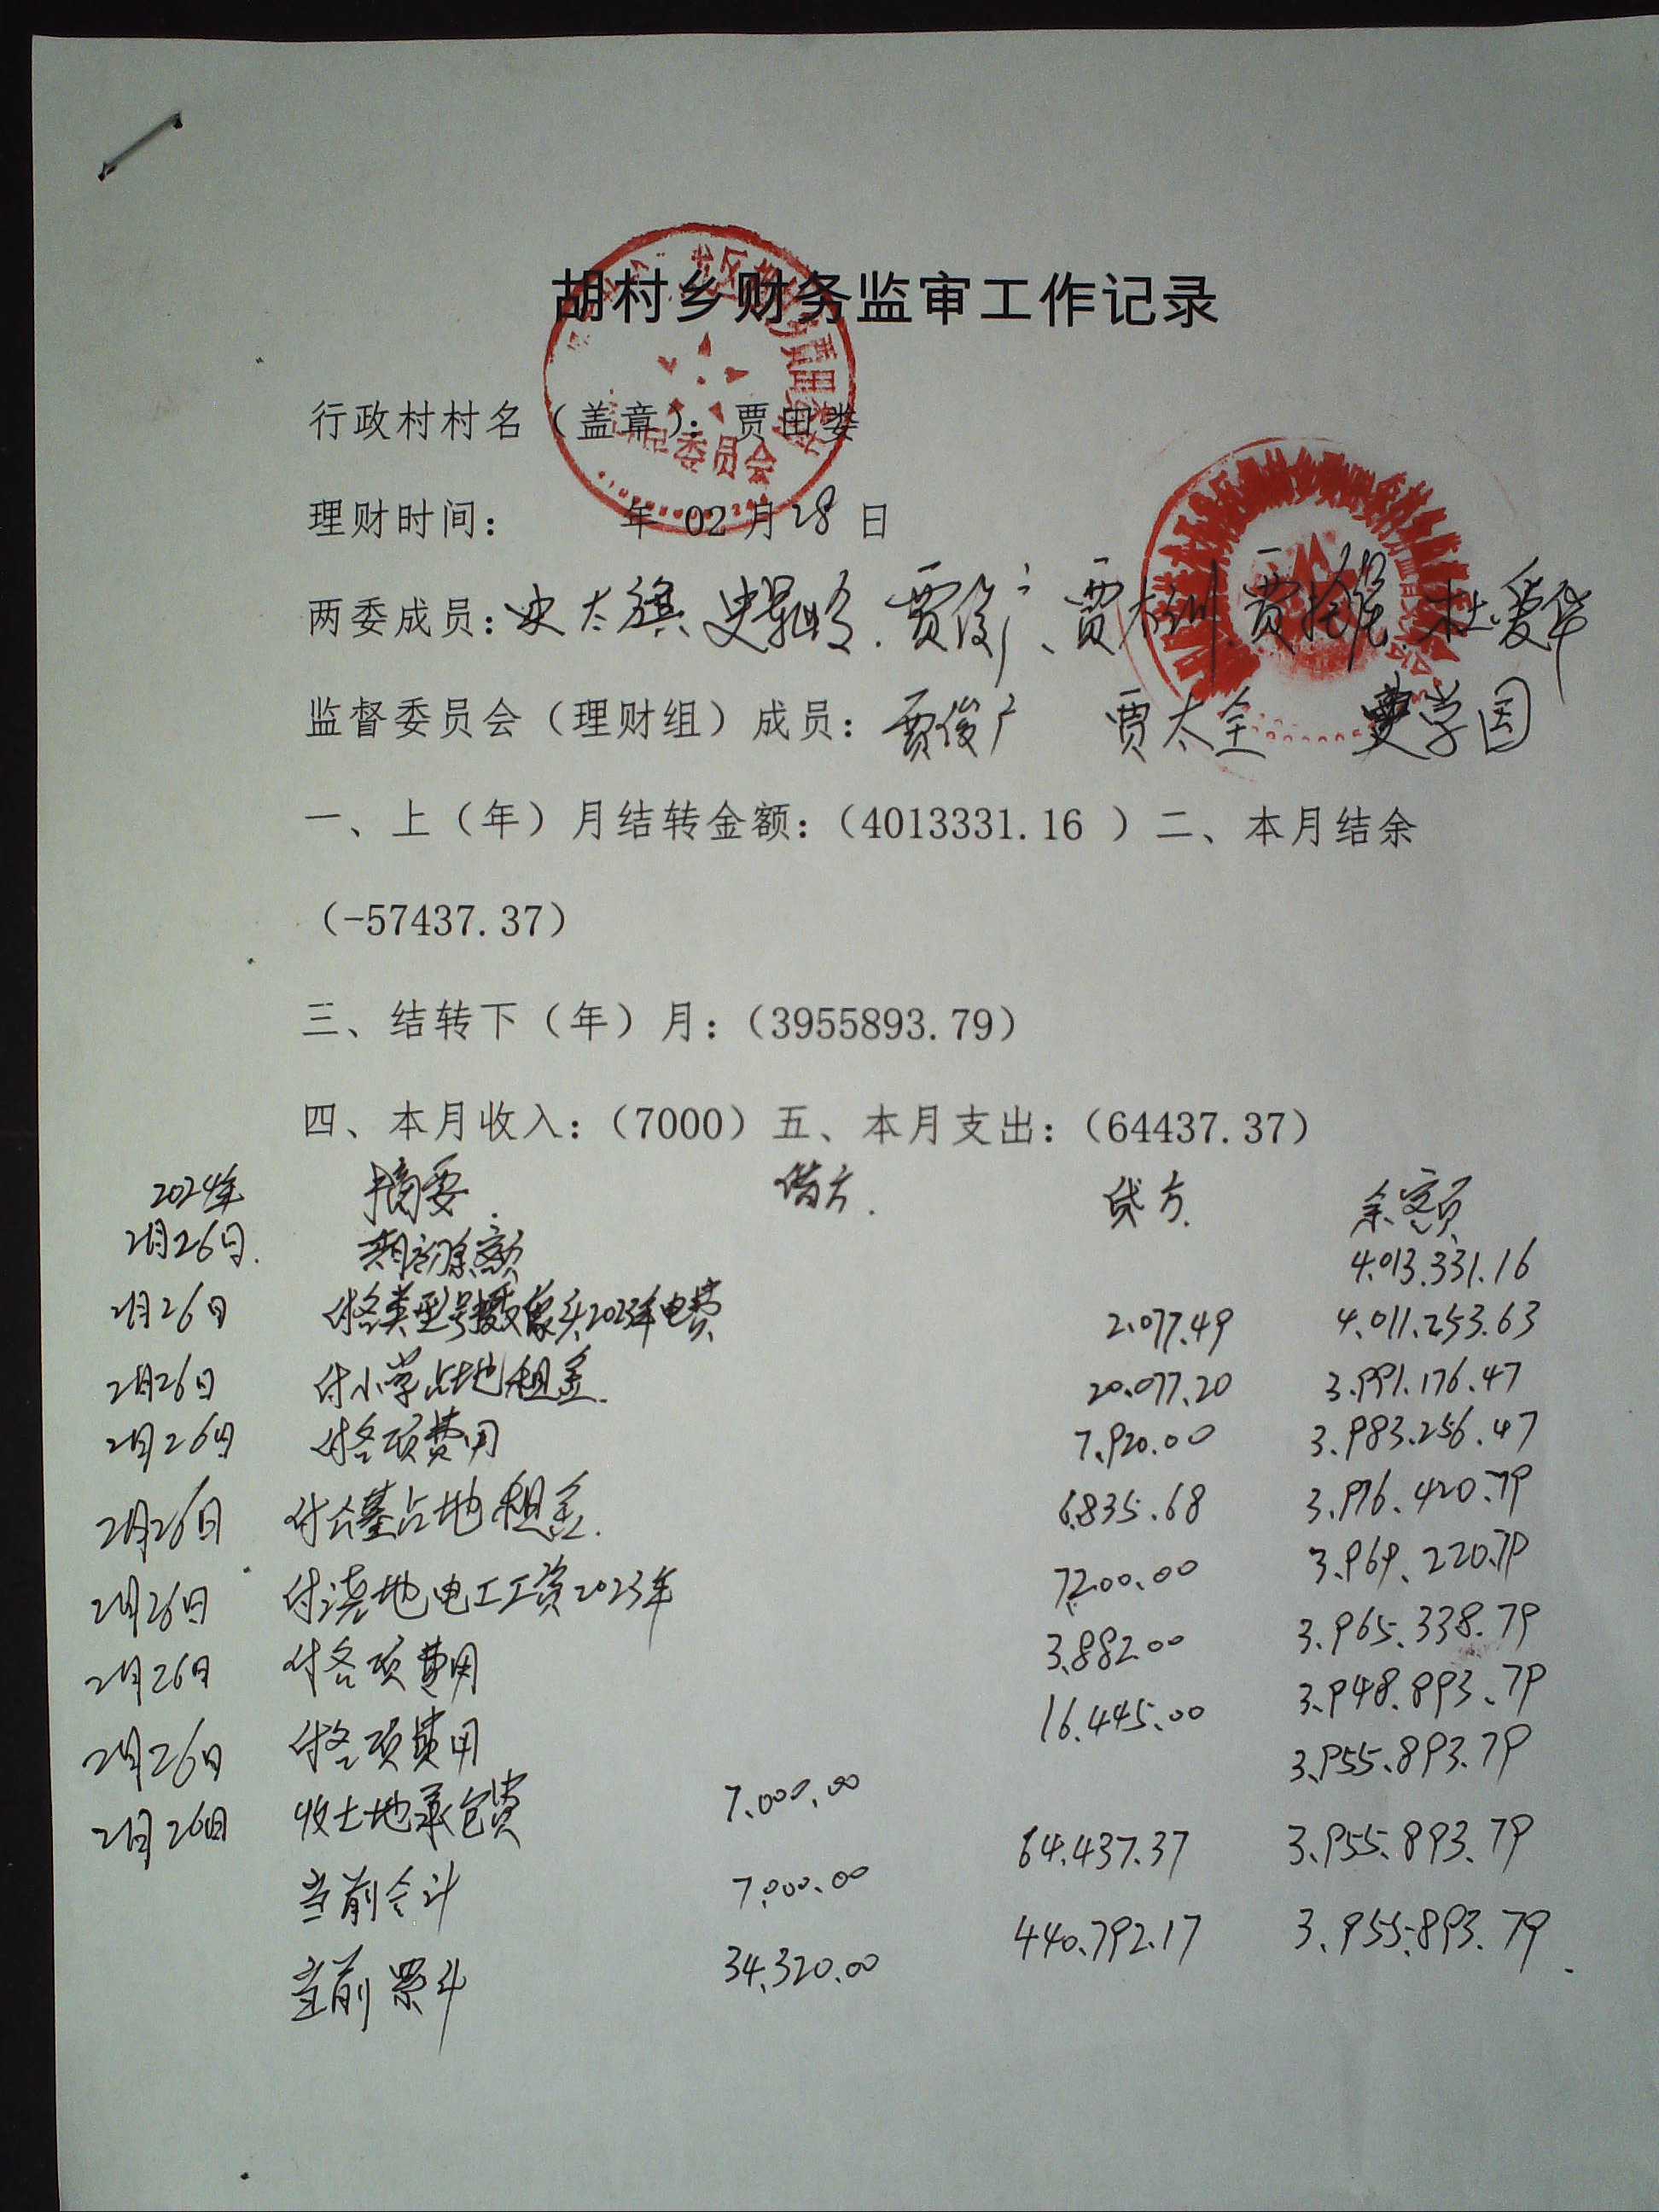 胡村乡财务监审工作记录
行政村村名（盖章）：贾田娄
理财时间： 年 02 月 28 日
两委成员：史太旗、史景岭、贾俊广、贾 杜爱华
监督委员会（理财组）成员：贾俊广 贾太全 娄学国
一、上（年）月结转金额：（4013331.16 ）二、本月结余
（-57437.37）
三、结转下（年）月：（3955893.79）
四、本月收入：（7000）五、本月支出：（64437.37）
2024年 摘要. 借方. 贷方. 余额
2月26日. 期初余额 4,013,331.16
2月26日 付各类型号摄象头2023年电费 2,077.49 4,011,253.63
2月26日 付小学占地租金. 20,077.20 3,991,176.47
2月26日 付各项费用 7,920.00 3,983,256.47
2月26日 付公墓占地租金. 6,835.68 3,976,420.79
2月26日 付浇地电工工资2023年 7,200.00 3,969,220.79
2月26日 付各项费用 3,882.00 3,965,338.79
2月26日 付各项费用 16,445.00 3,948,893.79
2月26日 收土地承包费 7,000.00 3,955,893.79
当前合计 7,000.00 64,437.37 3,955,893.79
当前累计 34,320.00 440,792.17 3,955,893.79.
委员会